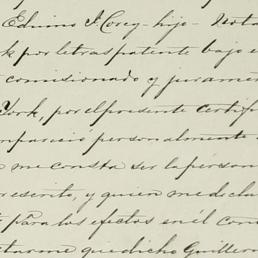 Edwino F. Corey - hijo - Nota
k por letras patente bajo e
comisionado y jurame
York, por el presente certifi
pareció personalmente
me consta ser la person
escrito, y quien me decla
para los efectos en él con
que dicho Guiller